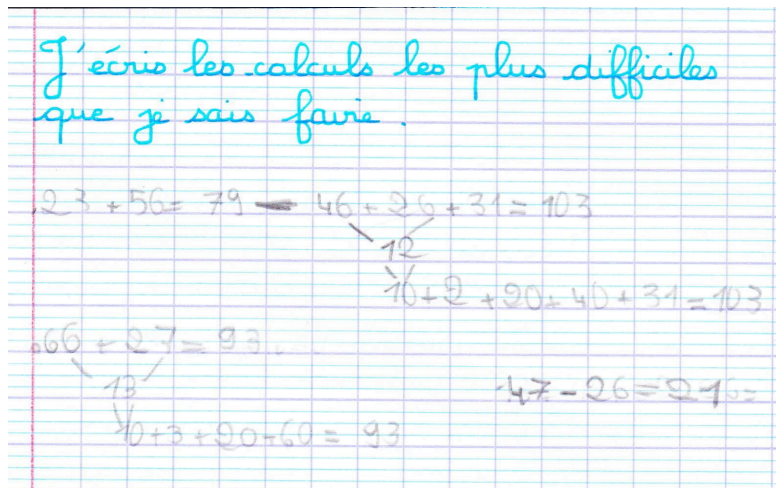 J'écris les calculs les plus difficiles
que je sais faire.
.23 + 56 = 79 - 46 + 26 + 31 = 103
12
10 + 2 + 20 + 40 + 31 = 103
.66 + 27 = 93
13
47 - 26 = 21
10 + 3 + 20 + 60 = 93